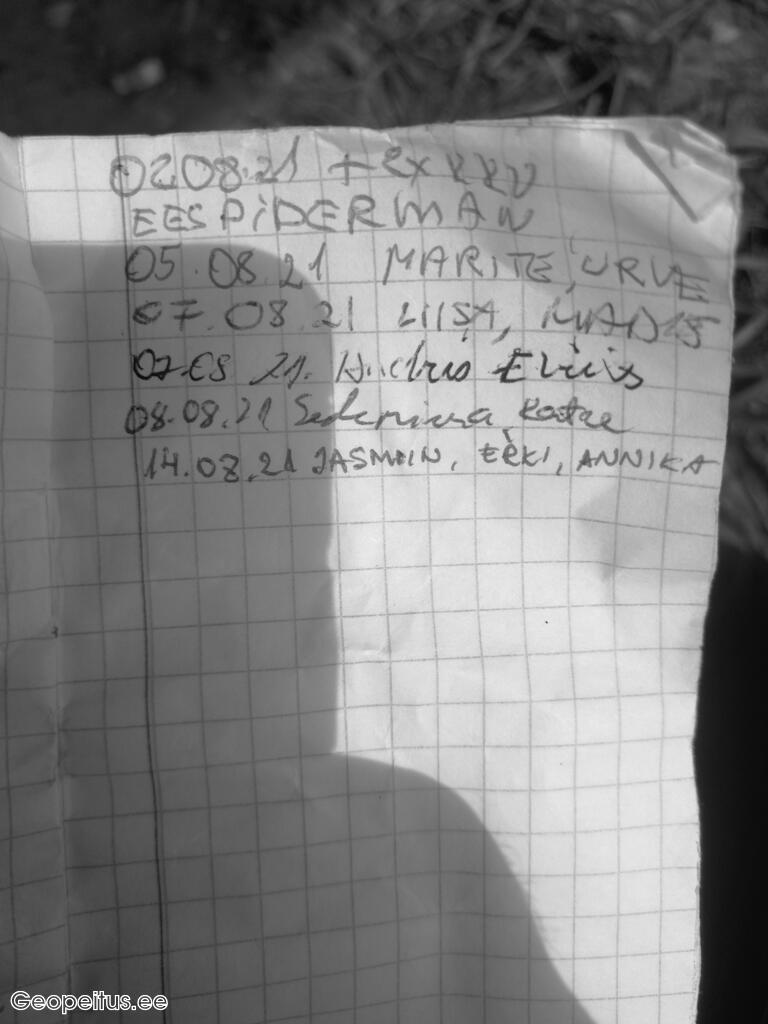 02.08.21
EESPIDERMAN
05.08.21 MARITE, URVE
07.08.21 LIISA, MADIS
07.08 21.
08.08.21 Katre
14.08.21 JASMIIN, ERKI, ANNIKA
Geopeitus.ee